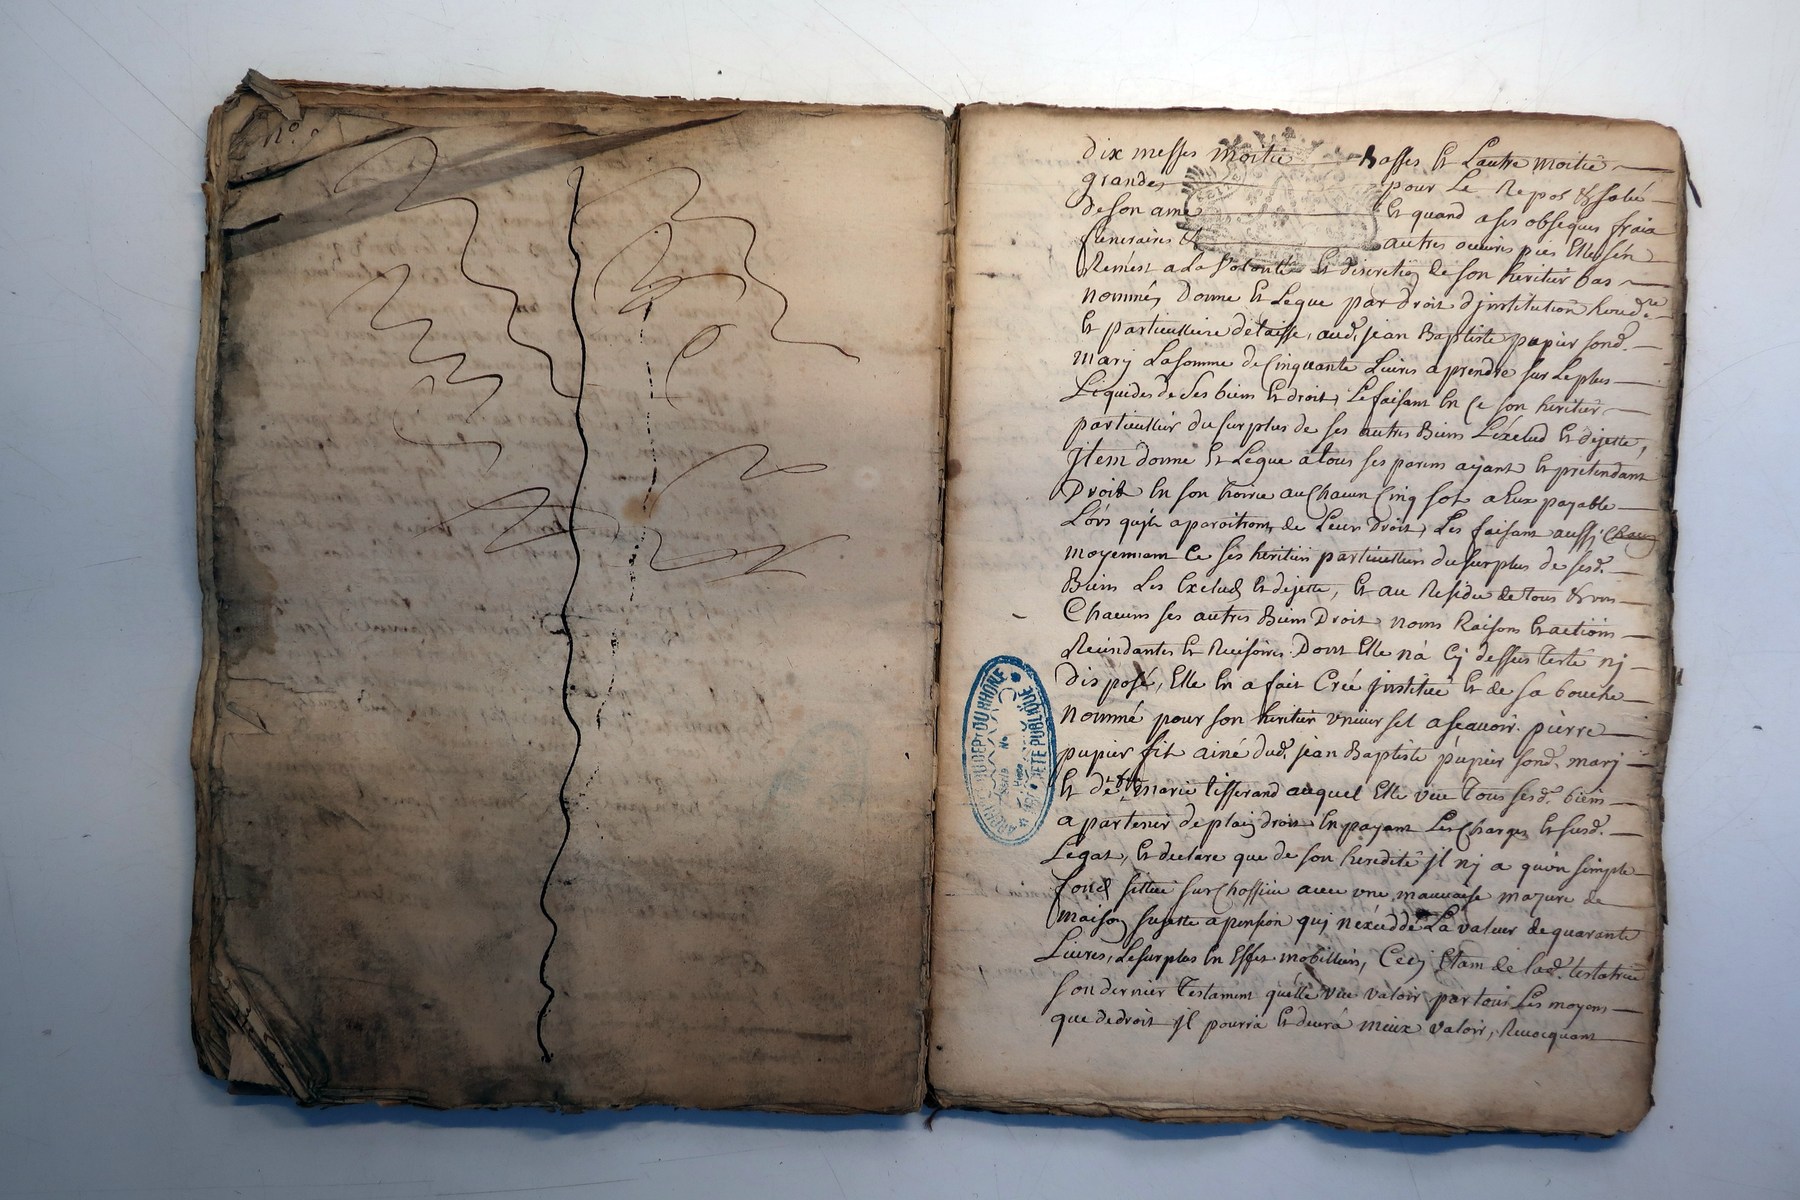 N°
dix messes moitié basses et Lautre moitié
grandes pour Le Repos & solû
de son ame et quand a ses obseques frais
funeraires & autres œuvres pies Elle sên
Remest a La Volonté et discretion de son heritier bas
nommé, donne et Legue par droit d'jnstitution hered.re
et particulliere delaisse, aud. jean Baptiste pupier sond.
mary La somme de Cinquante Livres a prendre sur Le plus
Liquides de ses biens et droit, Le faisant en Ce son heritier
particullier du surplus de ses autres Biens L'exclud et dejette,
jtem donne et Legue a tous ses parens ayant et pretendant
Droit en son hoirie au Chacun Cinq sol a Eux payable
Lors qu'jls aparoitront de Leurs Droit, Les faisant aussi
moyennant Ce ses heritiers particulliers du surplus de sesd.
Biens Les Exclud et dejette, et au Residu de tous & uns
Chacuns ses autres Biens Droit noms Raisons et actions
Recindantes et Recisoires Dont Elle n'a Cy dessus Testé nj
disposé, Elle en a fait Créé jnstitué et de sa bouche
Nommé pour son heritier vniversel a scavoir pierre
pupier fils ainé dud. jean Baptiste pupier sond. marj
et de marie tisserand auquel Elle veut Tous sesd. biens
apartenir de plain droit en payant Les Charges et susd.
Legat, et declare que de son heredité jl nj a qu'vn simple
fond sittué sur Chossieu avec vne mauvaise mazure de
maison sujette a pension quj n'exceddé La valeur de quarante
Livres, Le surplus en Effet mobilliers, Cecy Etant de lad. testatrice
son dernier Testament qu'elle veut valoir par tous Les moyens
que de droit jl pourra et devra mieux valoir, Revocquant
ARCHIVES DU DEPT DU RHONE
PIÉTÉ PUBLIQUE